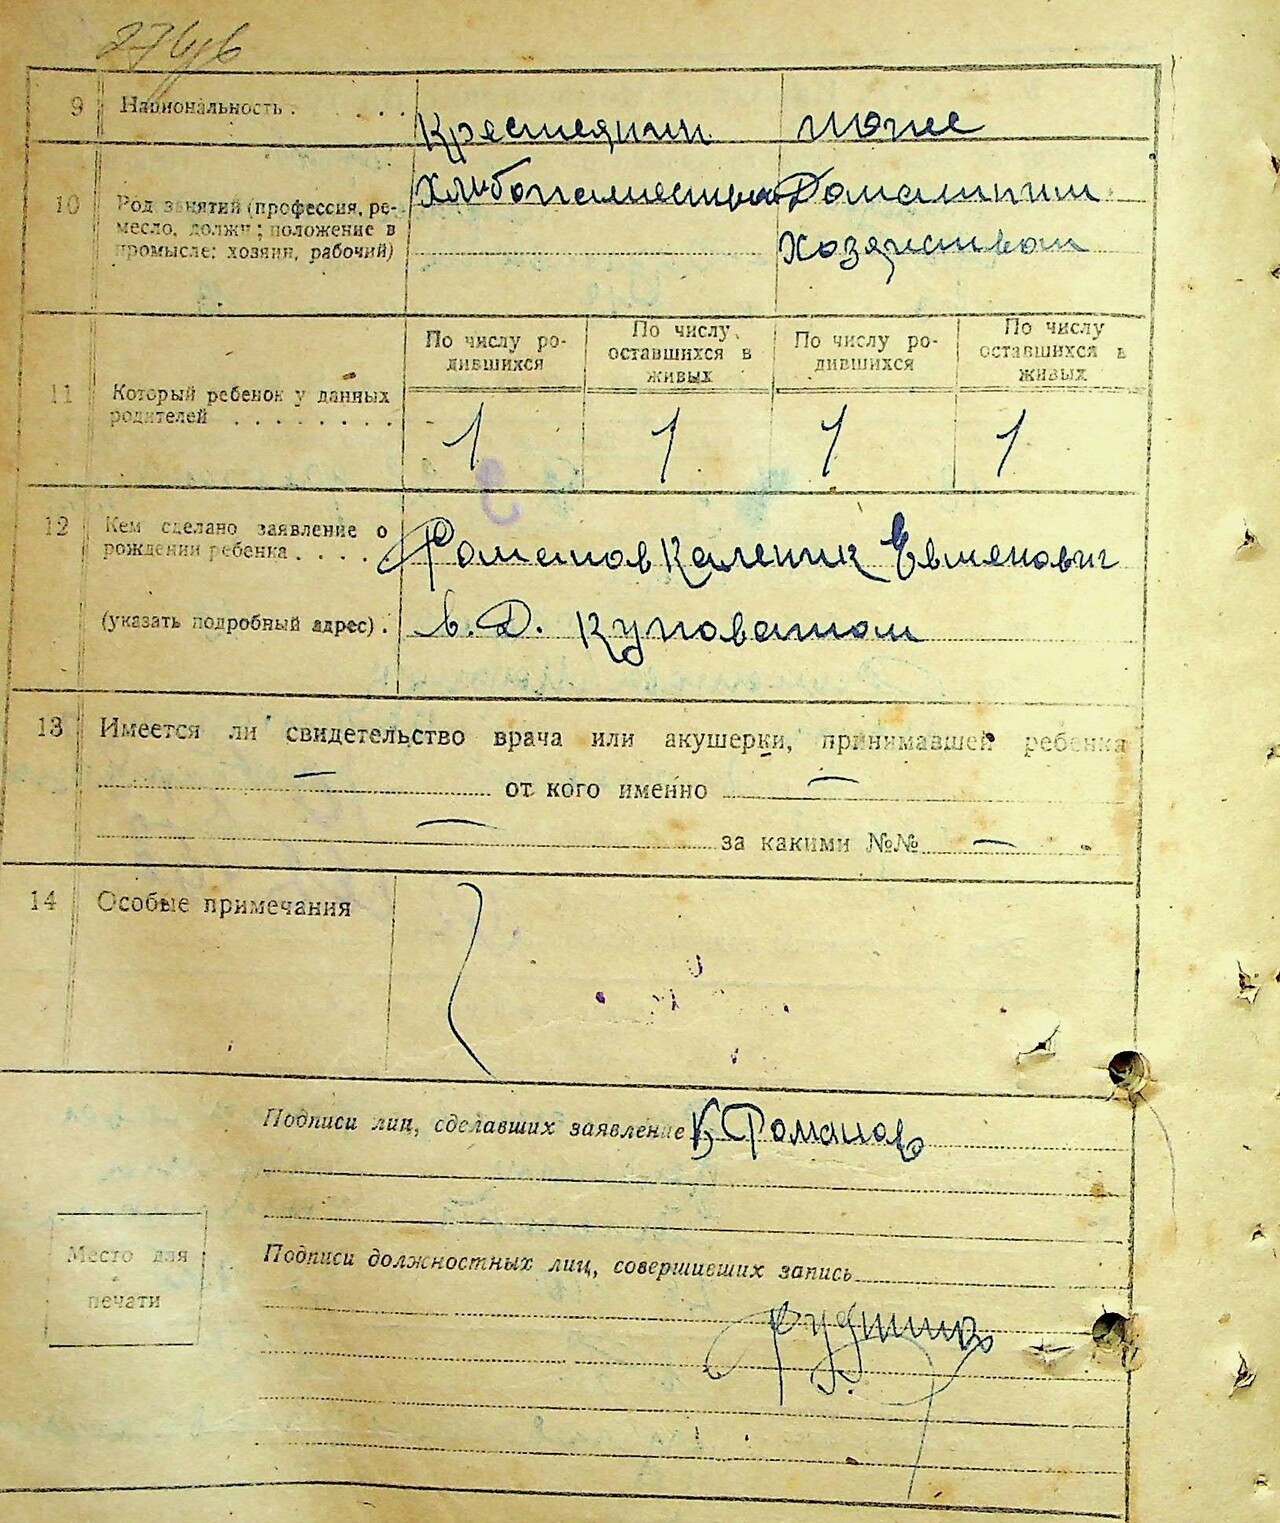 9 Национальность . . . . . Крестеянин тоже
10 Род занятий (профессия, ре-
месло, должн; положение в
промысле: хозяин, рабочий)
Домашним
Хозяеством
По числу ро-
дившихся
По числу
оставшихся в
живых
По числу ро-
дившихся
По числу
оставшихся в
живых
11 Который ребенок у данных
родителей . . . . . . . . 1 1 1 1
12 Кем сделано заявление о
рождении ребенка . . . . Романов Каленик Евменович
(указать подробный адрес) . в. Д. Куповатом
13 Имеется ли свидетельство врача или акушерки, принимавшей ребенка
— от кого именно —
— за какими №№ —
14 Особые примечания
Подписи лиц, сделавших заявление К Романов
Место для
печати
Подписи должностных лиц, совершивших запись